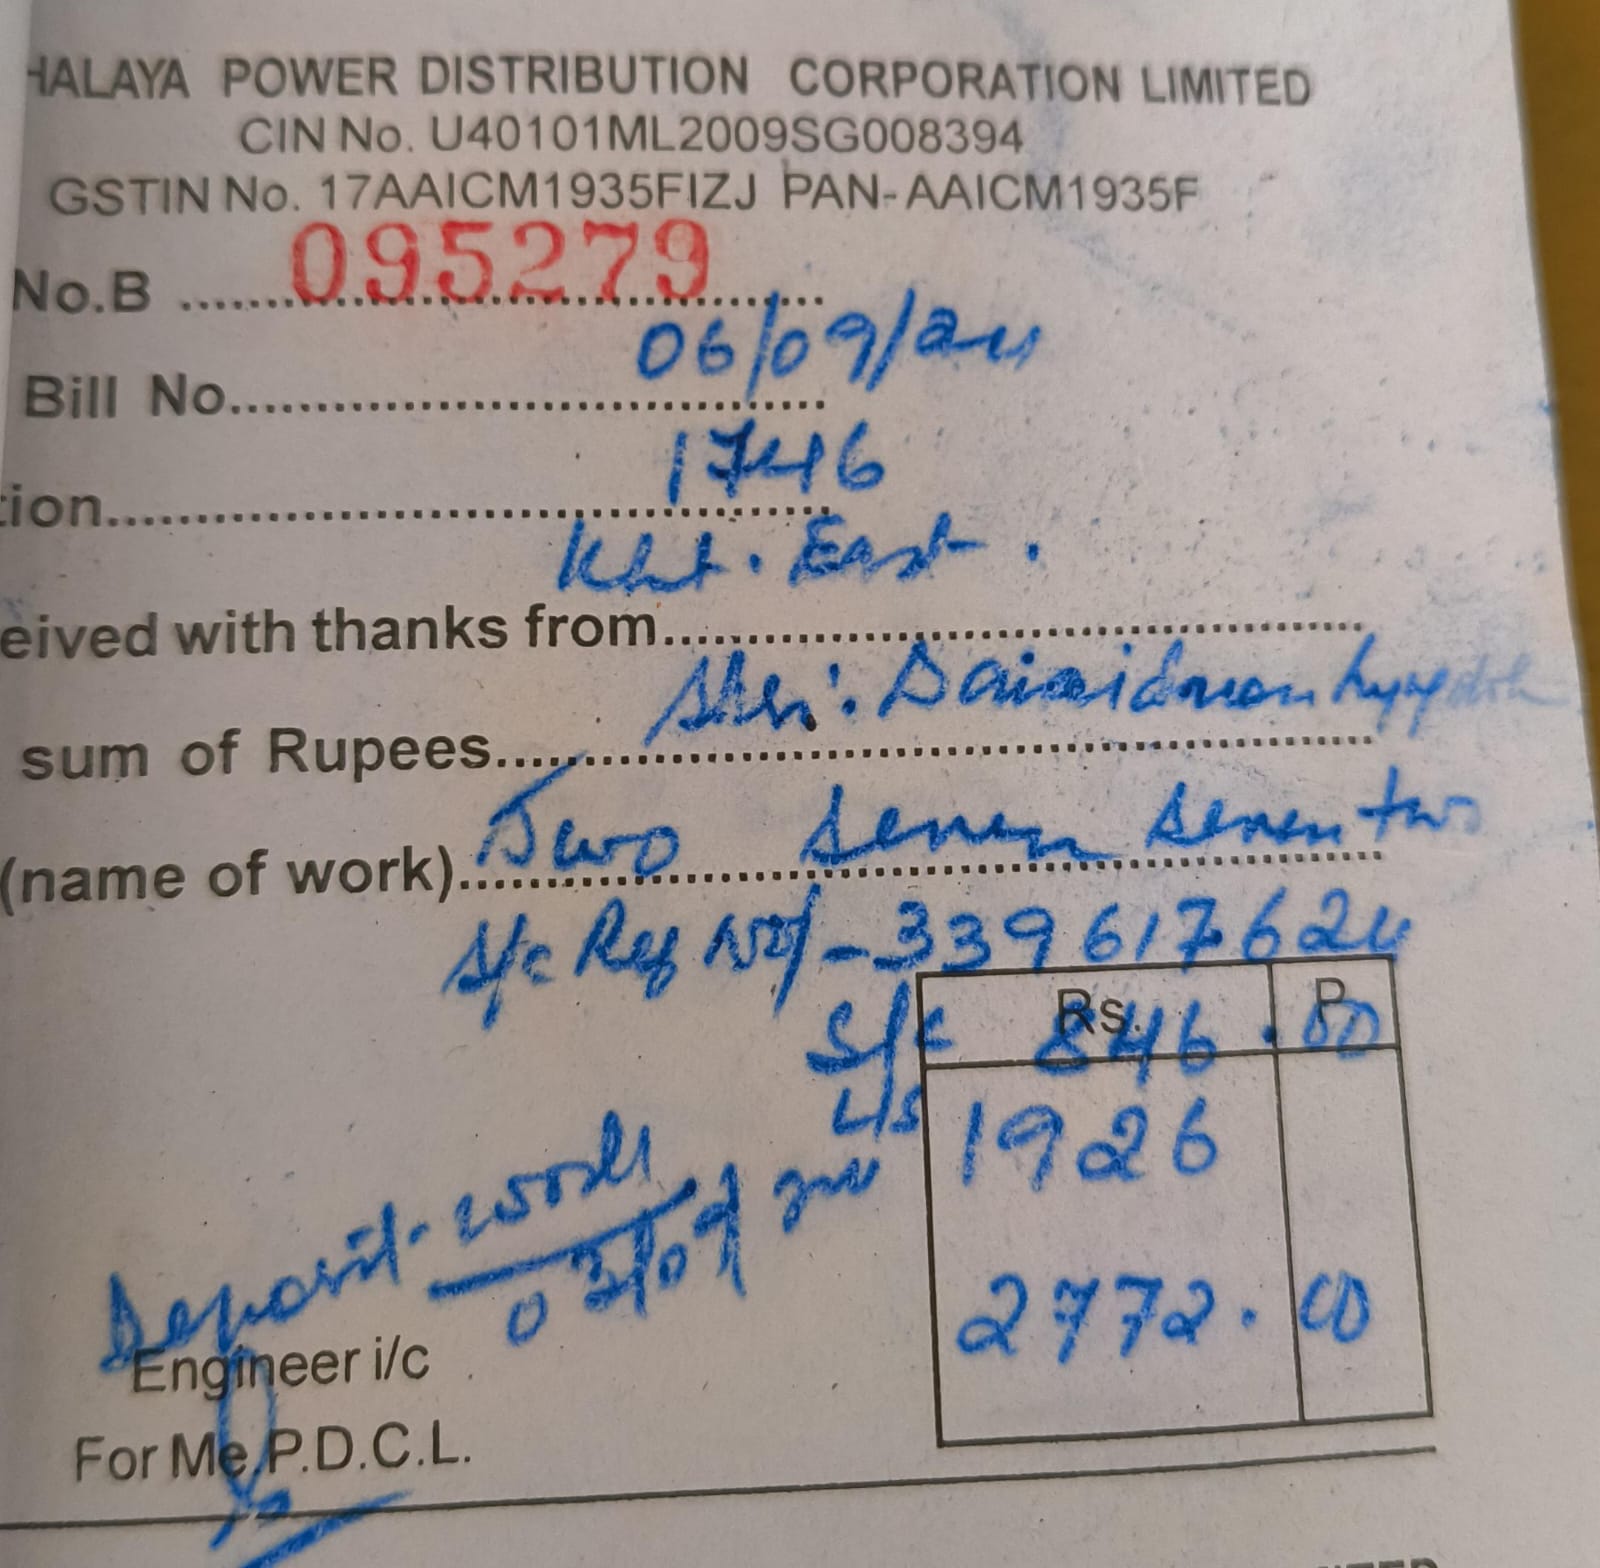 HALAYA POWER DISTRIBUTION CORPORATION LIMITED
CIN No. U40101ML2009SG008394
GSTIN No. 17AAICM1935FIZJ PAN-AAICM1935F
No.B .......... 095279
06/09/24
Bill No..........
1746
tion..........
Kht. East.
eived with thanks from..........
Shri:
sum of Rupees..........
Two seven seven two
(name of work)..........
S/c Reg No/-339617624
Rs. P.
S/C 846.00
L/S 1926
Deposit-work
2772.00
Engineer i/c
For Me.P.D.C.L.